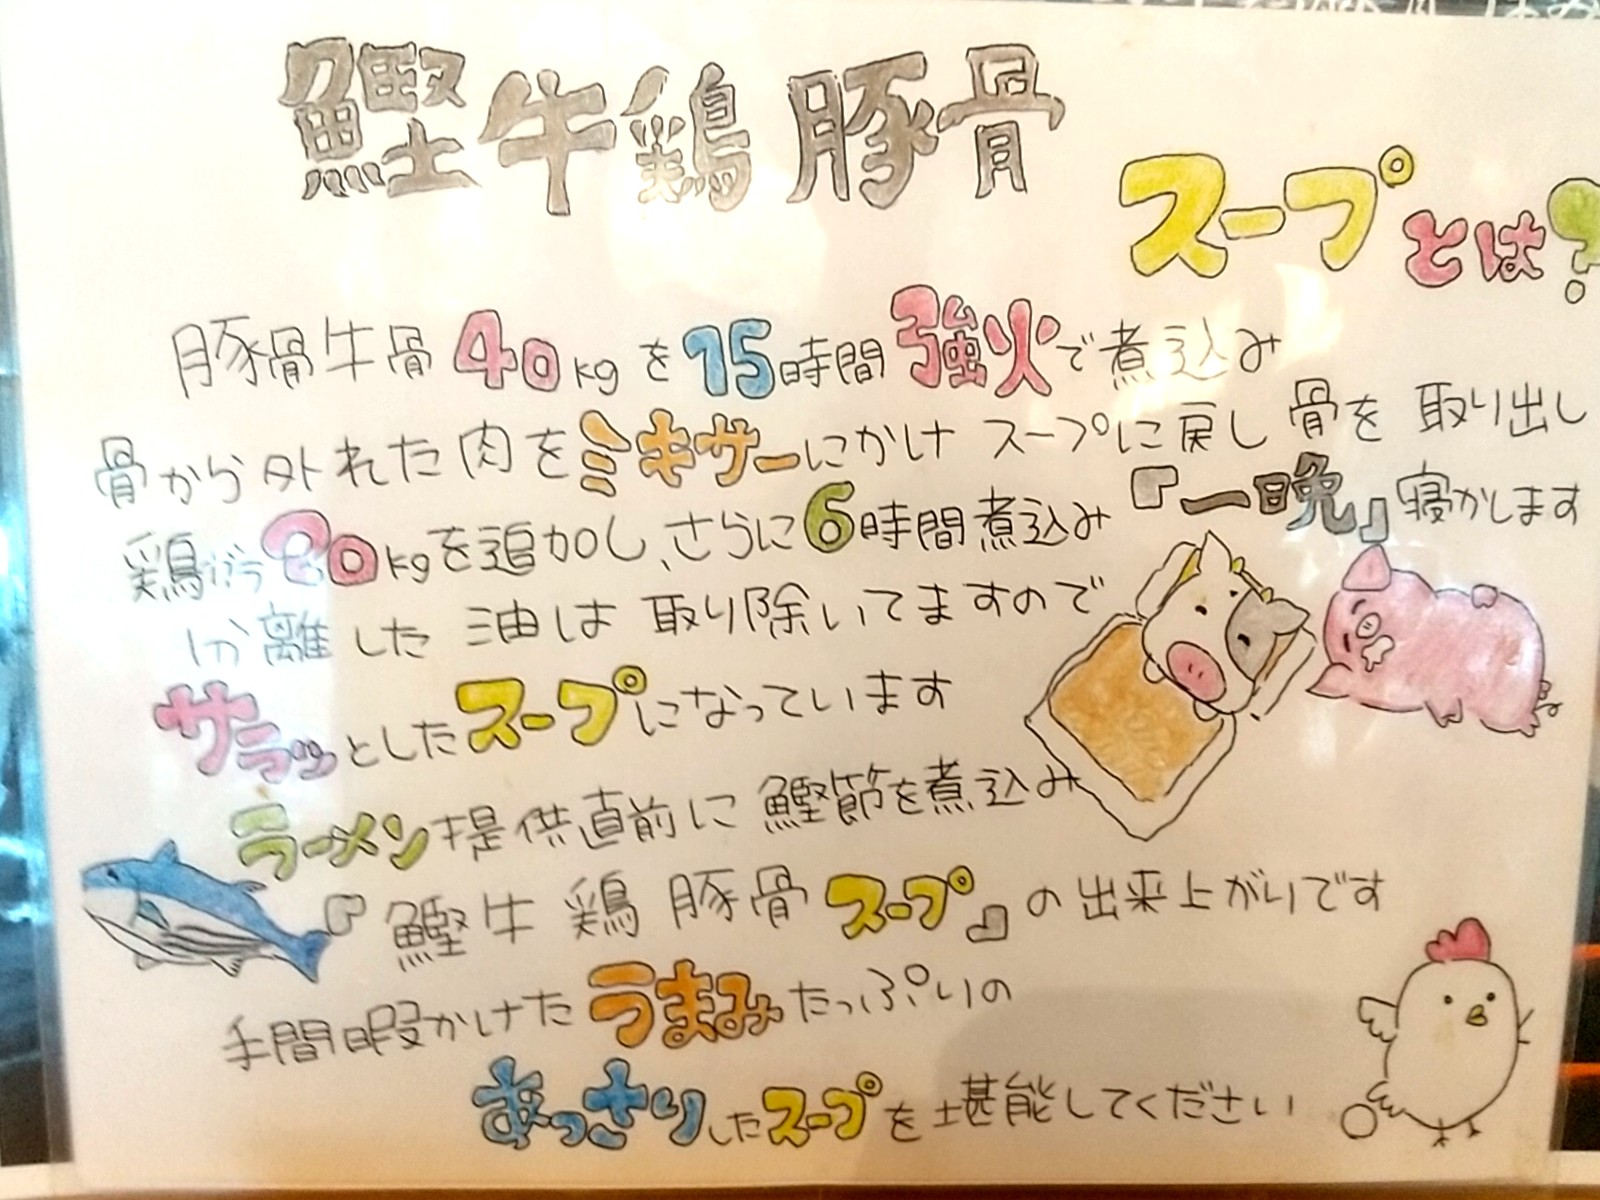 鰹牛鶏豚骨
スープとは?
豚骨牛骨40kgを15時間強火で煮込み
骨から外れた肉をミキサーにかけスープに戻し骨を取り出し
鶏がら20kgを追加し、さらに6時間煮込み『一晩』寝かします
分離した油は取り除いてますので
サラッとしたスープになっています
ラーメン提供直前に鰹節を煮込み
『鰹牛鶏豚骨スープ』の出来上がりです
手間暇かけたうまみたっぷりの
あっさりしたスープを堪能してください